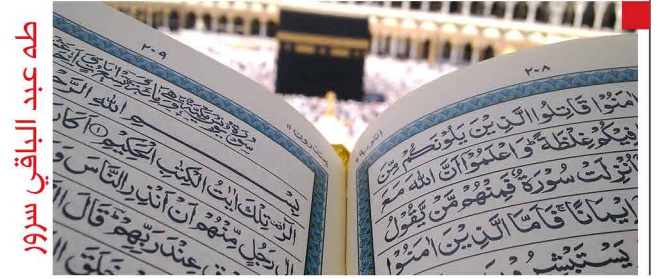 طه عبد الباقي سرور
٢٠٨
اٰمَنُوْا قَاتِلُوا الَّذِيْنَ يَلُوْنَكُمْ مِّنَ
فِيْكُمْ غِلْظَةً وَاعْلَمُوْٓا اَنَّ اللّٰهَ مَعَ
اُنْزِلَتْ سُوْرَةٌ فَمِنْهُمْ مَّنْ يَّقُوْلُ
اِيْمَانًا فَاَمَّا الَّذِيْنَ اٰمَنُوْا
٢٠٩
بِسْمِ اللّٰهِ
الٓرٰ تِلْكَ اٰيٰتُ الْكِتٰبِ الْحَكِيْمِ ١
رَجُلٍ مِّنْهُمْ اَنْ اَنْذِرِ النَّاسَ وَ
عِنْدَ رَبِّهِمْ قَالَ
خَلَقَ